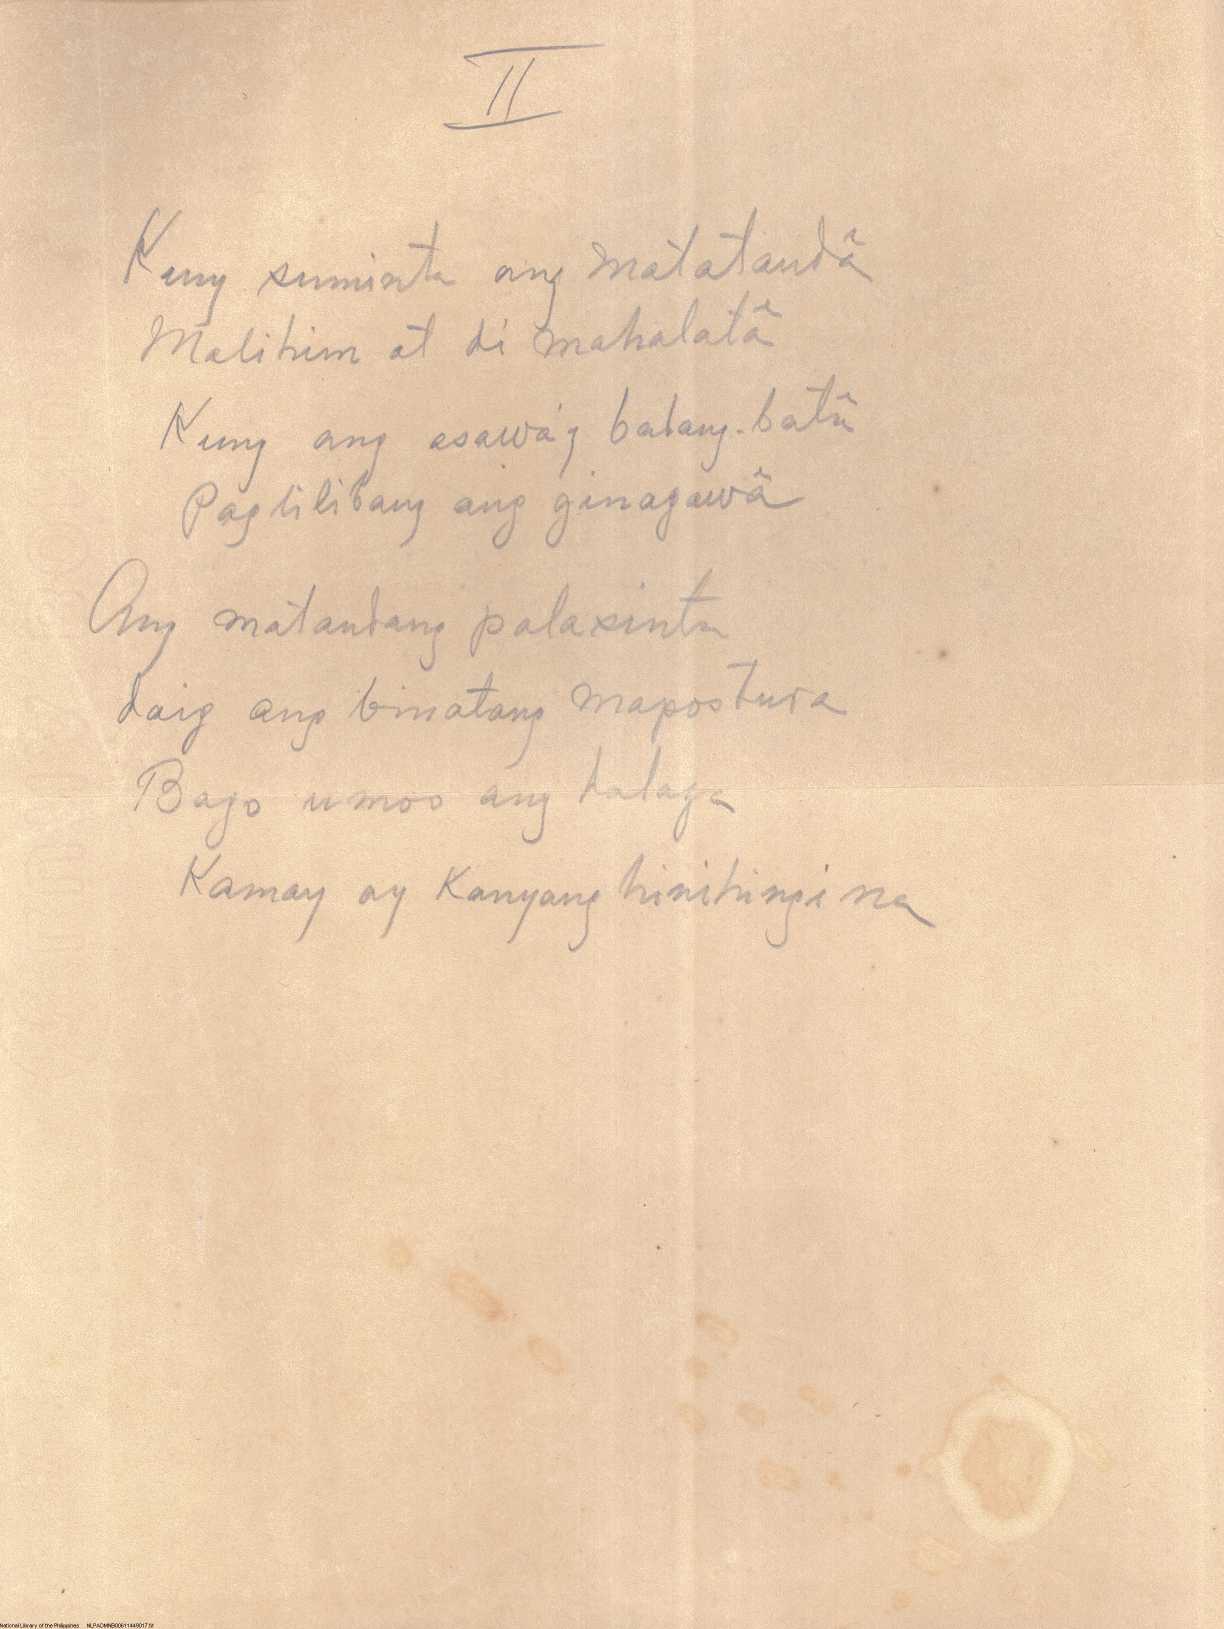 II
Kung suminta ang matatandâ
Malihim at di mahalatâ
Kung ang asawa'y batang-batâ
Paglilibang ang ginagawâ
Ang matandang palasinta
daig ang binatang mapostura
Bago umoo ang dalaga
Kamay ay kanyang hinihingi na
National Library of the Philippines NLPADMNB00611449017.tif